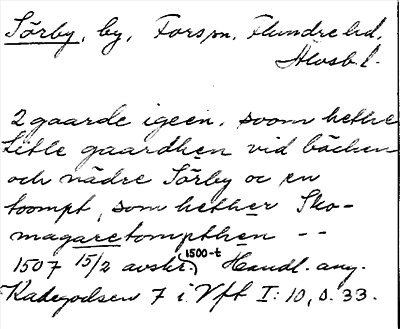 Sörby, by, Forsm, Flundre hd,
Älvsb. l.
2 gaarde igeen, soom hethe
Litle gaardhen vid bäcken
och nädre Sörby oc en
toompt, som hether Sko-
magaretompthen - -
1507 15/2 avskr. (1500-t) Handl. ang.
Kadegodsen 7 i Vft I: 10, s. 33.